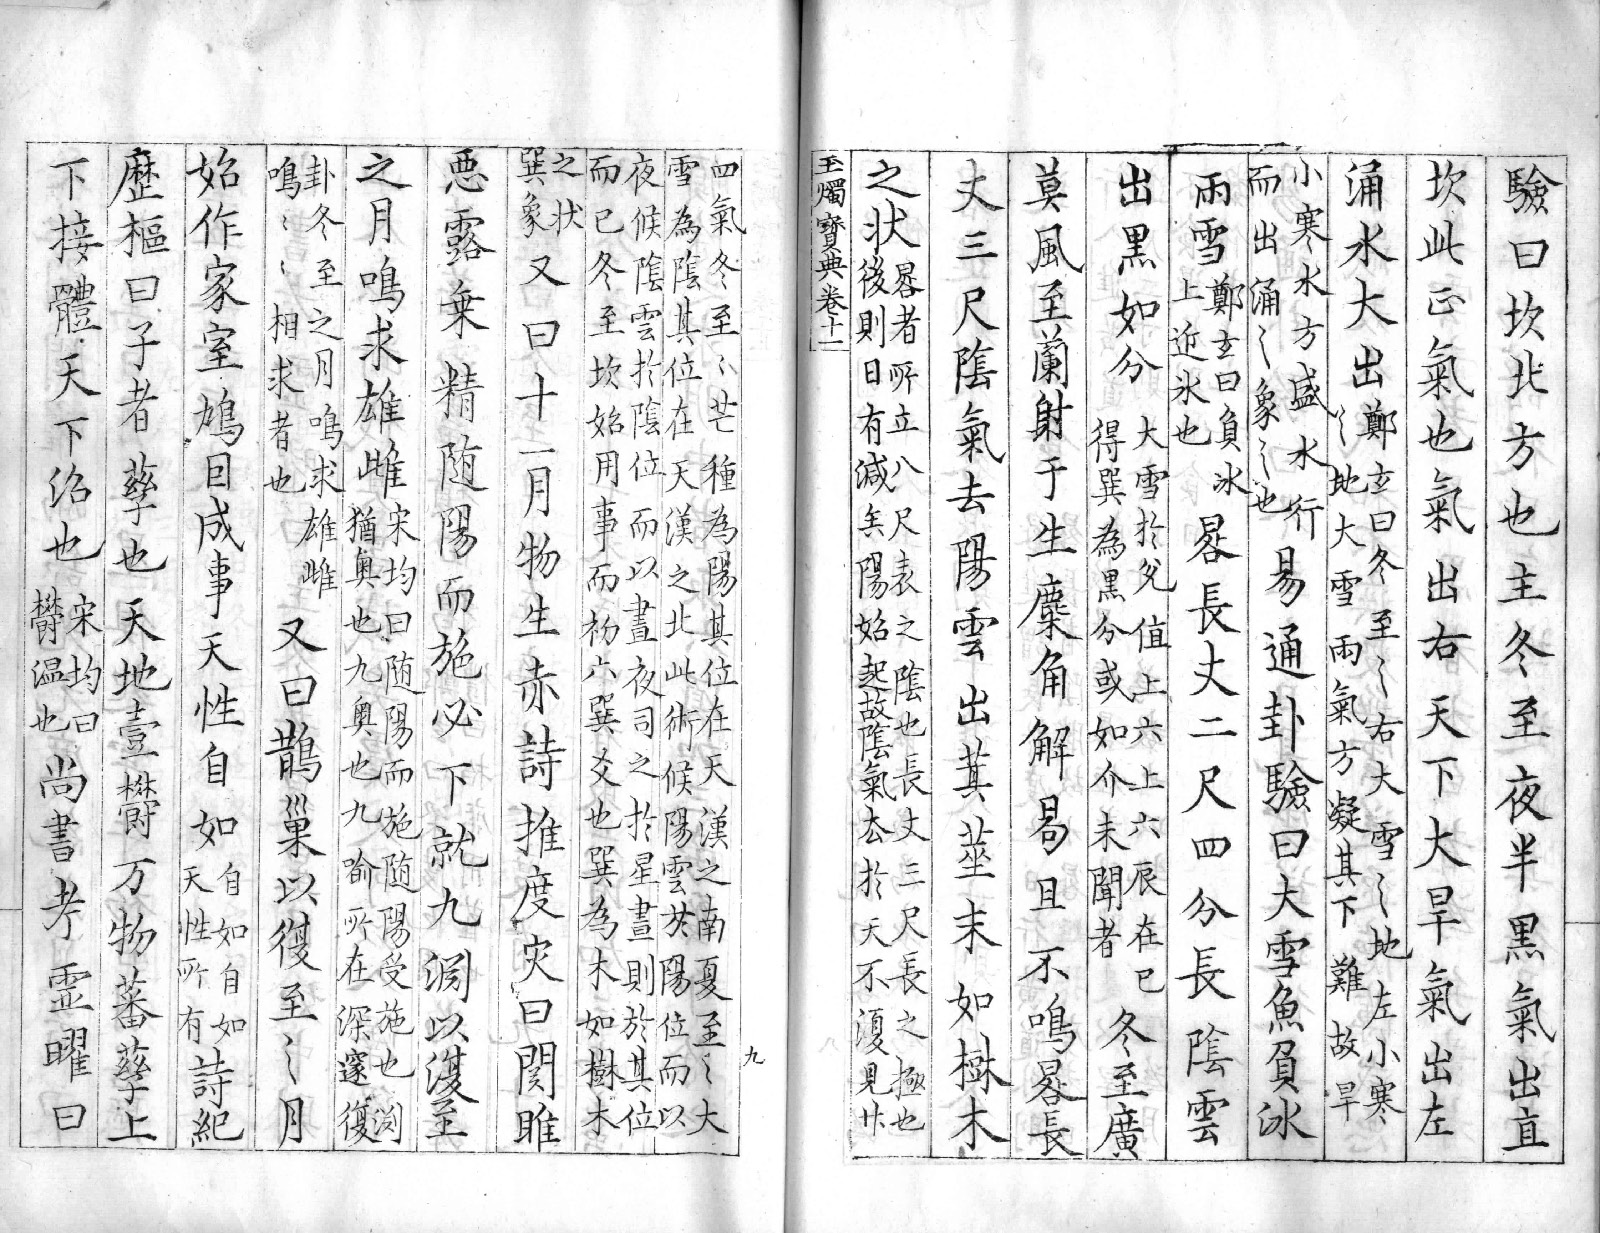 驗曰坎北方也主冬至夜半黑氣出直
坎此正氣也氣出右天下大旱氣出左
涌水大出鄭玄曰冬至〻右大雪〻地左小寒
〻地大雪雨氣方凝其下難故旱
小寒水方盛水行
而出涌〻象〻也
易通卦驗曰大雪魚負冰
雨雪鄭玄曰負冰
上近冰也
晷長丈二尺四分長陰雲
出黑如分大雪於兊值上六上六辰在巳
得巽為黑分或如介未聞者
冬至廣
莫風至蘭射于生麋角解曷旦不鳴晷長
丈三尺陰氣去陽雲出萁莖末如樹木
之状晷者所立八尺表之陰也長丈三尺長之極也
後則日有減矣陽始起故陰氣去於天不復見廿
玉燭寶典卷十一
九
四氣冬至〻芒種為陽其位在天漢之南夏至〻大
雪為陰其位在天漢之北此術候陽雲於陽位而以
夜候陰雲於陰位而以晝夜司之於星晝則於其位
而已冬至坎始用事而初六巽爻也巽為木如樹木
之状
巽象
又曰十一月物生赤詩推度灾曰関雎
惡露乗精随陽而施必下就九渕以復至
之月鳴求雄雌宋均曰随陽而施随陽受施也渕
猶奥也九奥也九喻所在深邃復
卦冬至之月鳴求雄雌
鳴〻〻相求者也
又曰鵲巢以復至〻月
始作家室鳩因成事天性自如自如自如
天性所有
詩紀
歷樞曰子者孳也天地壹欝万物蕃孳上
下接體天下治也宋均曰
欝温也
尚書考霊曜曰